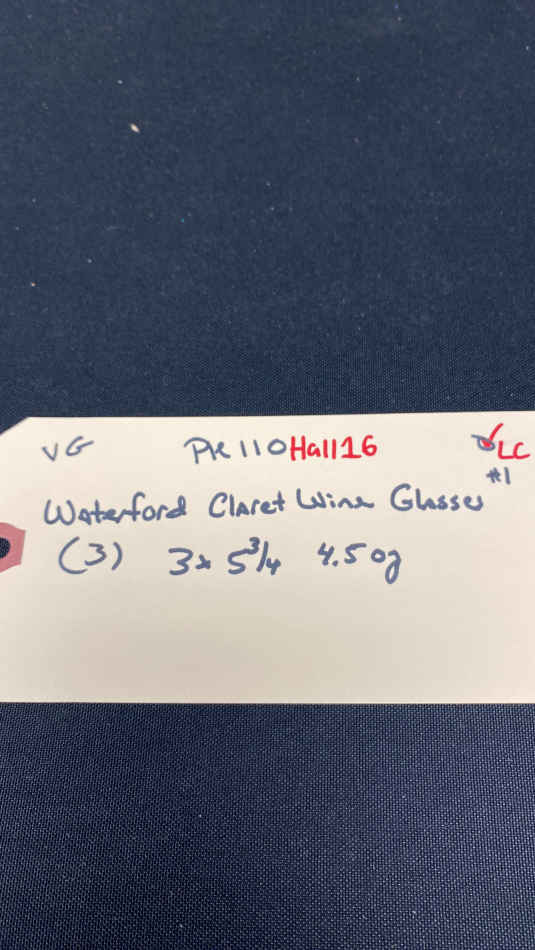 VG PK110Hall16 LC
#1
Waterford Claret Wine Glasses
(3) 3x 5 3/4 4.5 oz